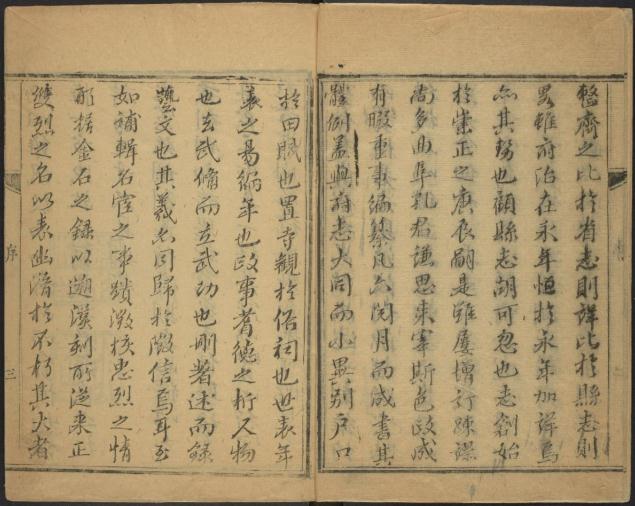 整齊之比於省志則詳比於縣志則
畧雖府治在永年恒於永年加詳焉
亦其勢也顧縣志胡可忽也志創始
於崇正之庚辰嗣是雖屢增訂踈謬
尚多曲阜孔君謙思來宰斯邑政成
有暇重事編纂凡六閱月而成書其
體例蓋與府志大同而小異別户口
於田賦也置寺觀於俗祠也世表年
表之易編年也政事耆德之析人物
也去武備而立武功也刪著述而錄
藝文也其義同歸於徵信焉耳至
如補輯名宦之事蹟徵核忠烈之情
形據金石之錄以遡漢刻所從來正
雙烈之名以表幽潛於不朽其大者
序
三